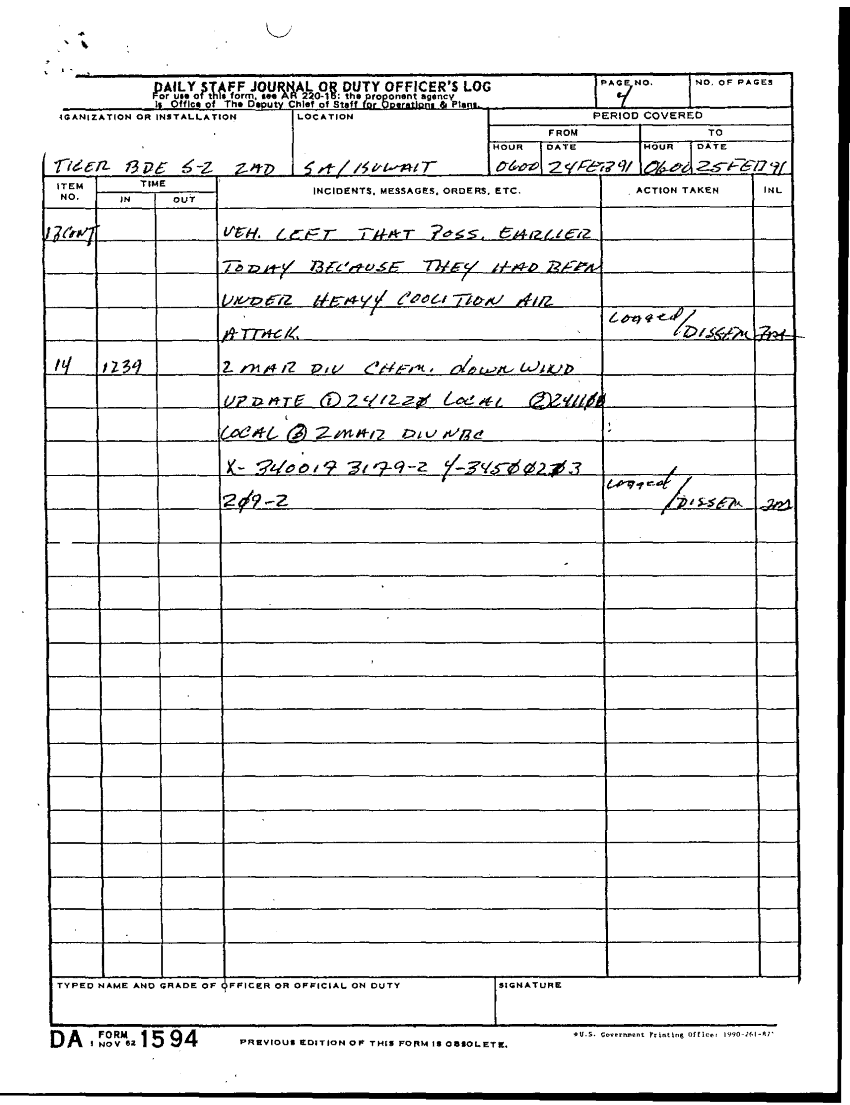 DAILY STAFF JOURNAL OR DUTY OFFICER'S LOG
For use of this form, see AR 220-15: the proponent agency
is Office of The Deputy Chief of Staff for Operations & Plans.
PAGE NO.
4
NO. OF PAGES
IGANIZATION OR INSTALLATION
LOCATION
PERIOD COVERED
FROM
TO
HOUR DATE HOUR DATE
TIGER BDE S-2 2AD SA/KUWAIT 0600 24FEB91 0600 25FEB91
ITEM NO.
TIME
IN OUT
INCIDENTS, MESSAGES, ORDERS, ETC.
ACTION TAKEN
INL
13CONT VEH. LEFT THAT POSS. EARLIER
TODAY BECAUSE THEY HAD BEEN
UNDER HEAVY COOLITION AIR
ATTACK. Logged/DISSEM
14 1239 2 MAR DIV CHEM. dOWN WIND
UPDATE ① 241220 LOCAL ② 241100
LOCAL ③ 2 MAR DIV NBC
X- 340019 3179-2 Y-34500203
209-2 Logged/DISSEM
TYPED NAME AND GRADE OF OFFICER OR OFFICIAL ON DUTY
SIGNATURE
DA FORM 1594
1 NOV 62
PREVIOUS EDITION OF THIS FORM IS OBSOLETE.
*U.S. Government Printing Office: 1990-261-87